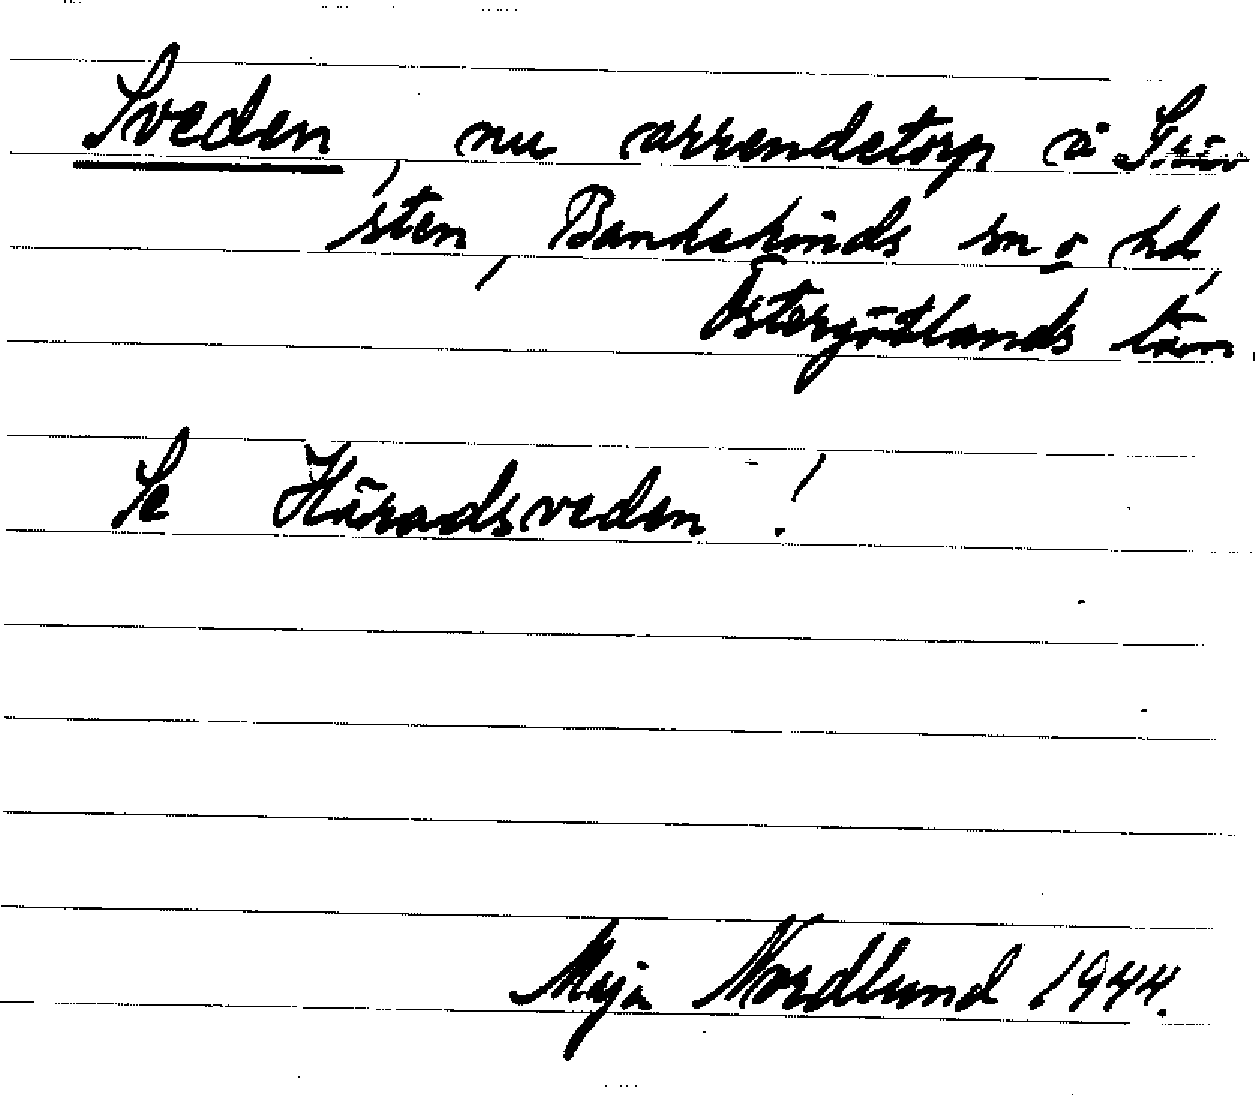 Sveden, nu arrendetorp å Gräv
sten, Bankekinds sn o hd,
Östergötlands län.
Se Häradsveden!
Maja Nordlund 1944.